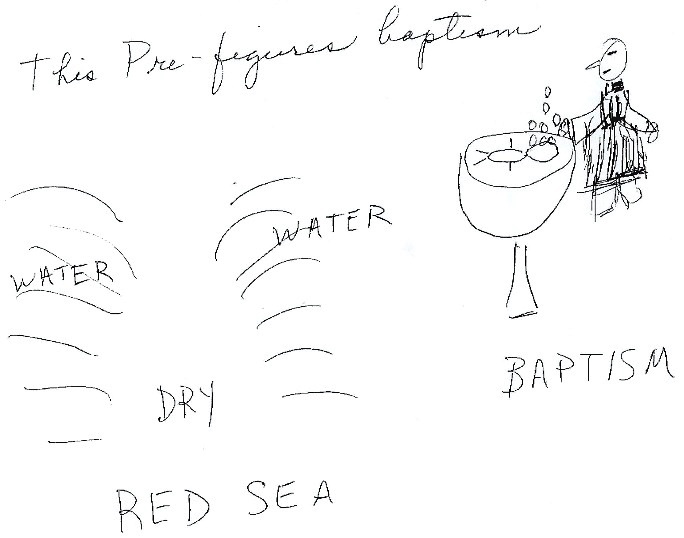 This Pre-figures baptism
WATER
WATER
DRY
BAPTISM
RED SEA